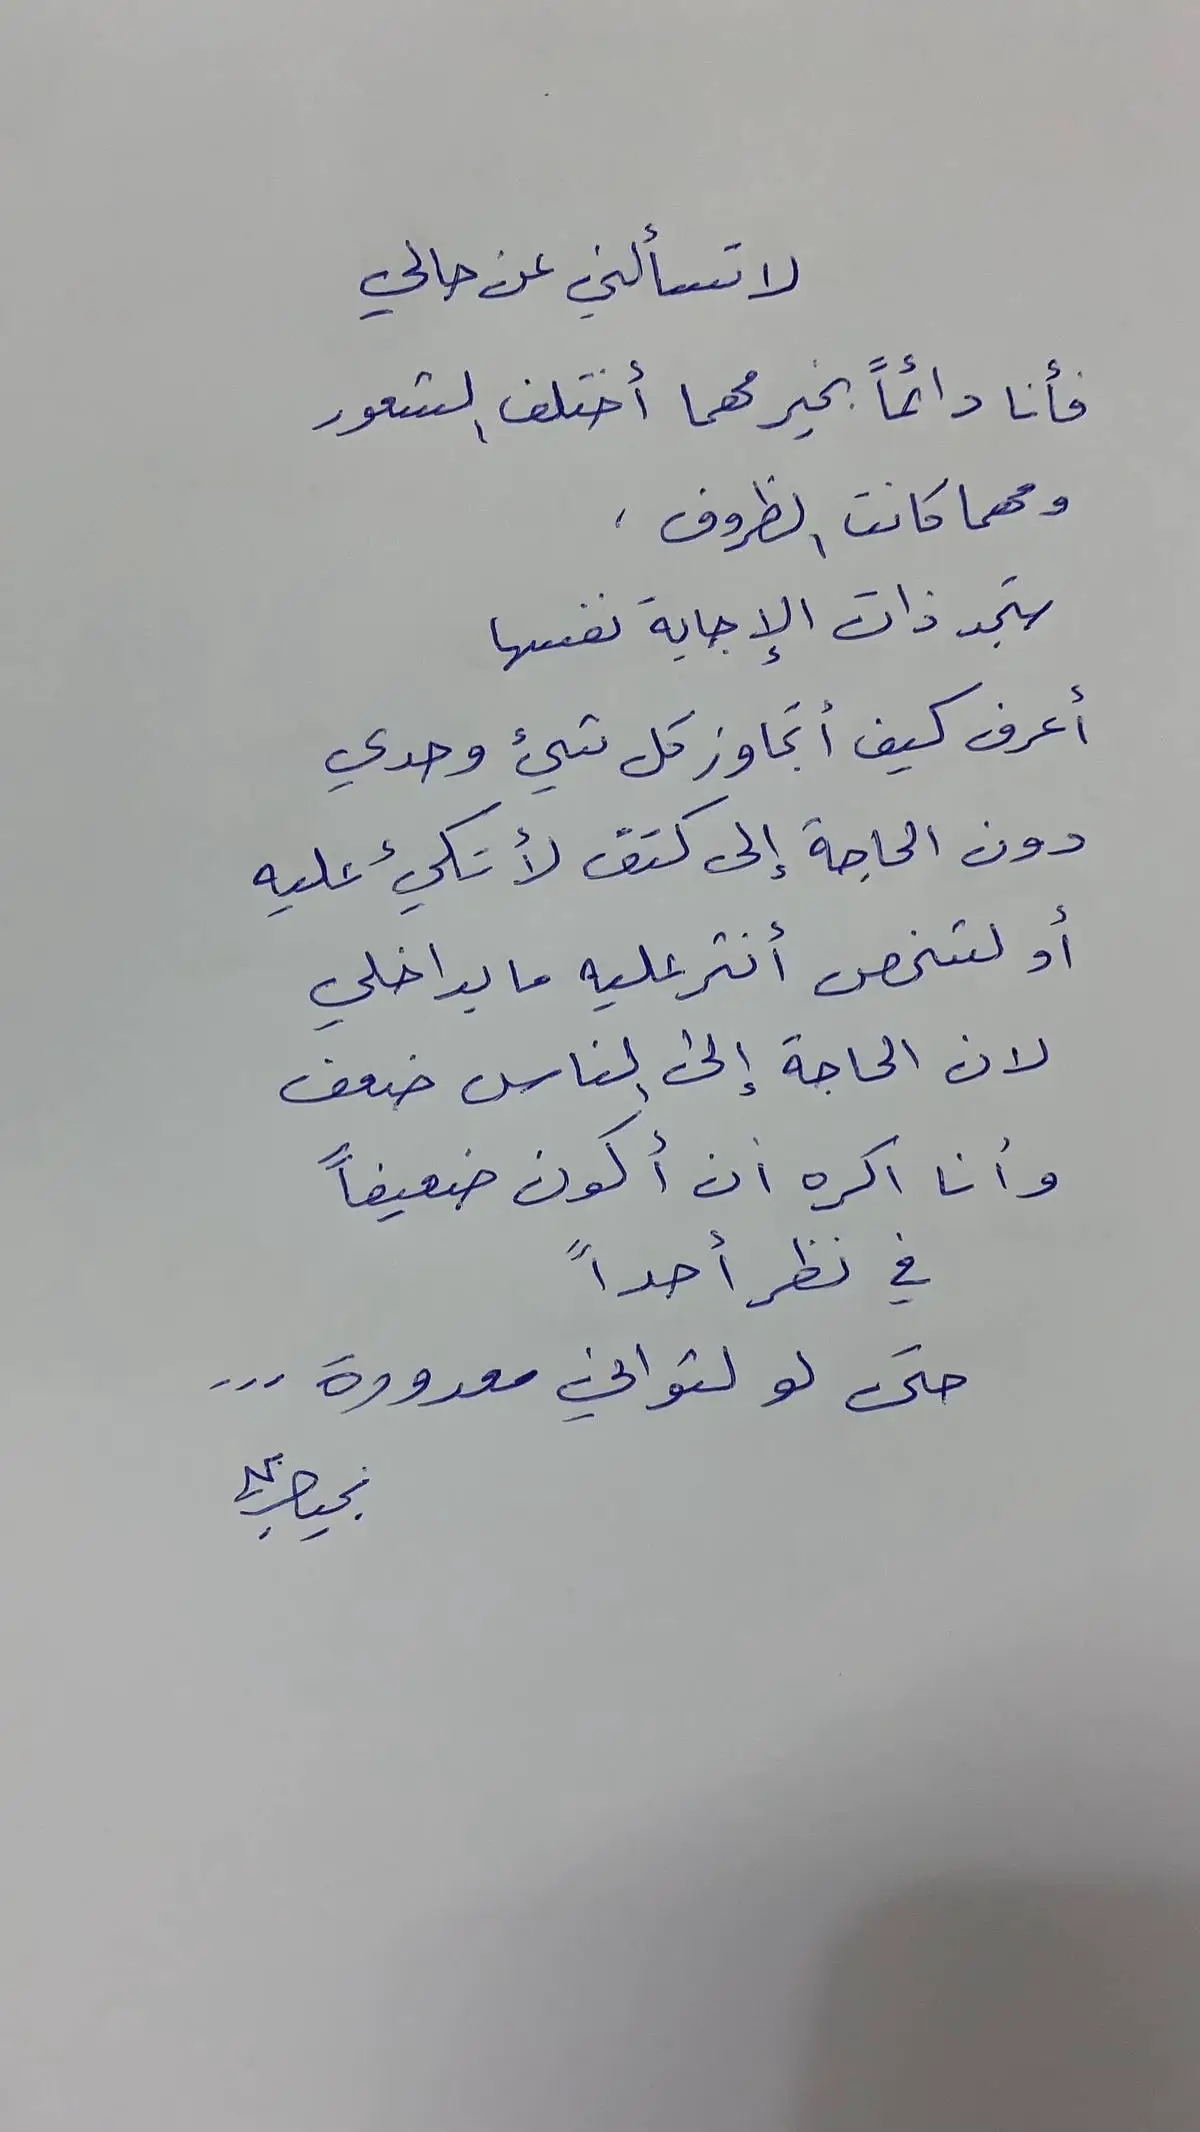 لا تسألني عن حالي
فأنا دائماً بخير مهما أختلف الشعور
ومهما كانت الظروف ،
ستجد ذات الإجابة نفسها
أعرف كيف أتجاوز كل شيئ وحدي
دون الحاجة إلى كتف لأتكئ عليه
أو لشخص أنثر عليه ما بداخلي
لان الحاجة إلى الناس ضعف
وأنا اكره أن أكون ضعيفاً
في نظر أحداً
حتى لو لثواني معدودة ...